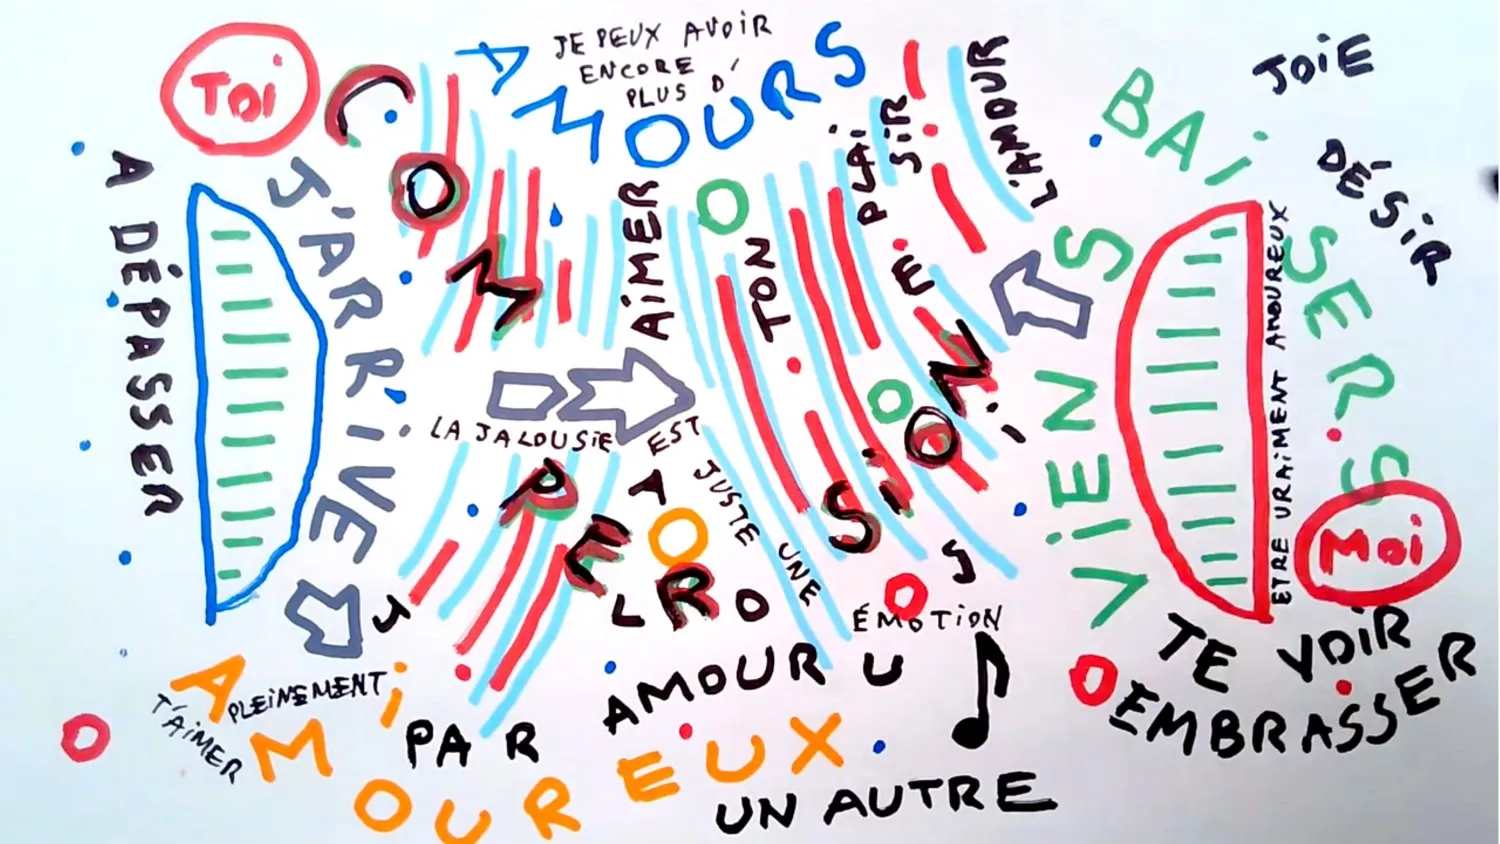 Toi
À DÉPASSER
J'ARRIVE
J'ARRIVE
COMPERSION
AMOURS
JE PEUX AVOIR
ENCORE
PLUS D'
AIMER
TON
PLAISIR
L'AMOUR
BAISERS
JOIE
DÉSIR
VIENS
ETRE VRAIMENT AMOUREUX
Moi
LA JALOUSIE EST JUSTE UNE
ÉMOTION
À DÉPASSER
T'AIMER
PLEINEMENT
AMOUREUX
AMOUR
PAR
UN AUTRE
TE VOIR
EMBRASSER